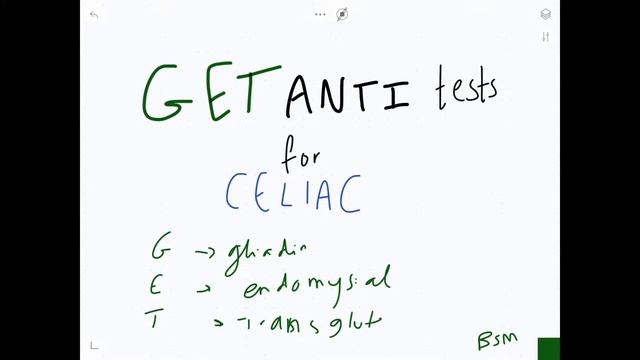 GET ANTI tests
for
CELIAC
G → gliadin
E → endomysial
T → Transglut
BSM